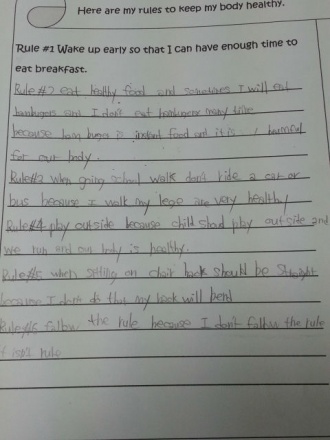 Here are my rules to keep my body healthy.
Rule #1 Wake up early so that I can have enough time to
eat breakfast.
Rule #2 eat healthy food and sometimes I will eat
hambugers and I don't eat hambugers many time
because hambugers is instant food and it is harmful
for our body
Rule#3 when going school walk don't ride a car or
bus because I walk my legs are very healthy
Rule#4 play outside because child should play outside and
we run and our body is healthy.
Rule#5 when sitting on chair back should be straight
because I don't do that my back will bend
Rule#6 follow the rule because I don't follow the rule
isn't rule